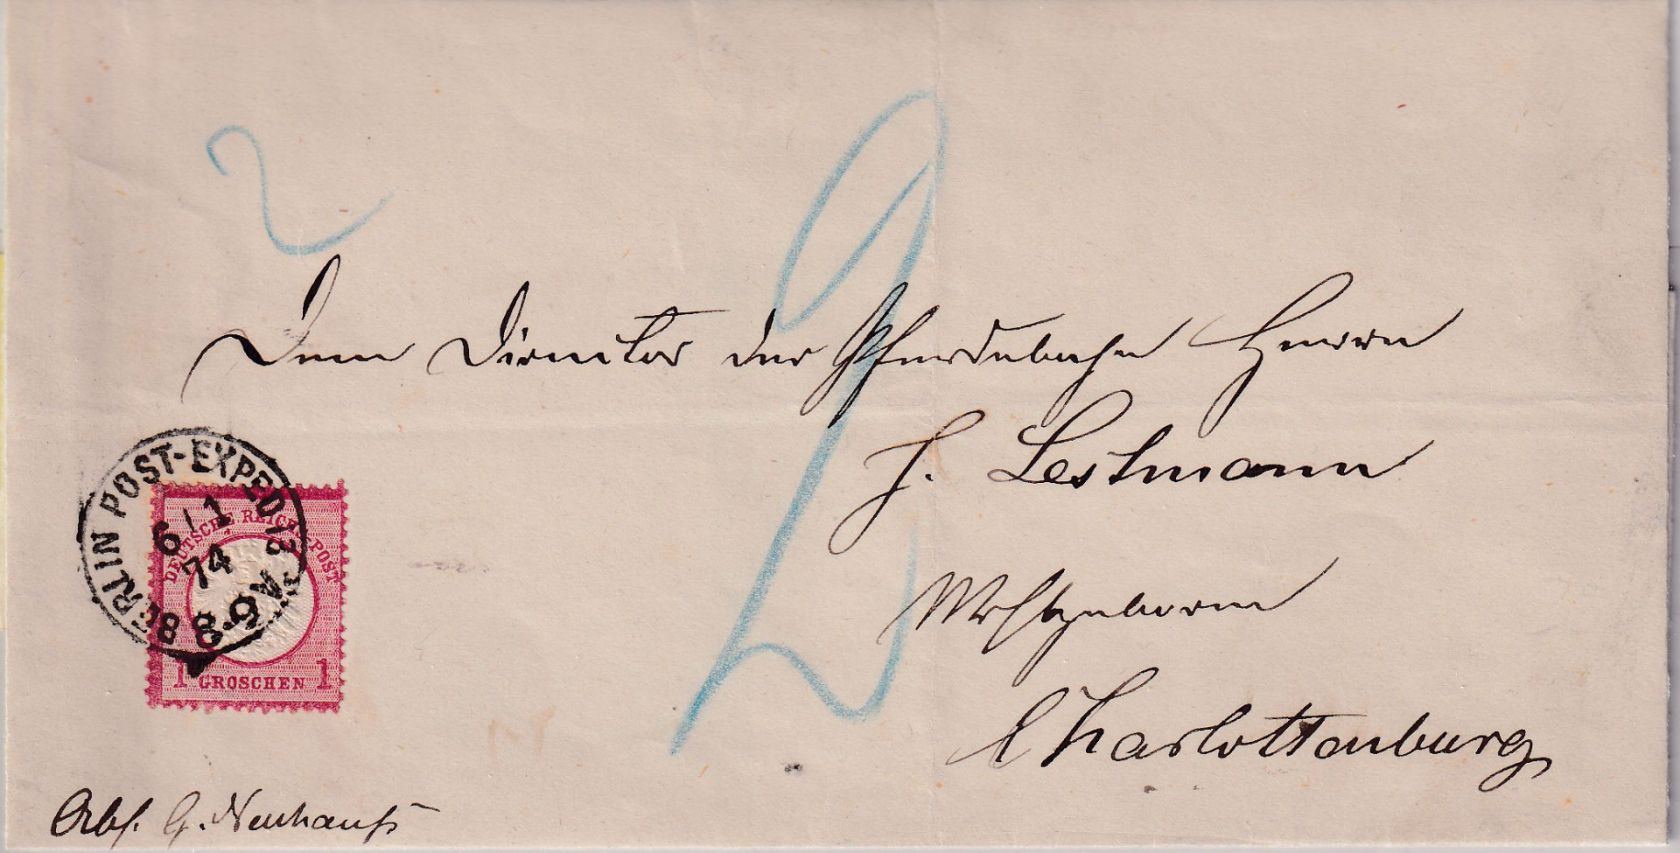 2
2
Dem Director der Pferdebahn Herrn
J. Lestmann
Wohlgeboren
Charlottenburg
BERLIN POST-EXPED. 13
6/1
74
8-9V.
DEUTSCHE REICHS-POST
1 GROSCHEN 1
Abs. G. Neuhauß